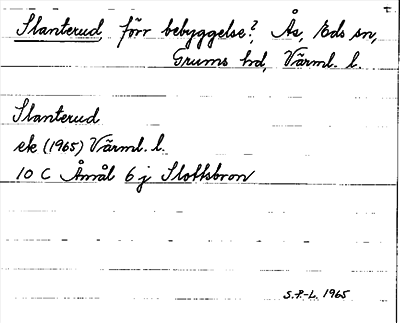 Slanterud, förr bebyggelse?, Ås, Eds sn,
Grums hd, Värml. l.
Slanterud
ek (1965) Värml. l.
10 C Åmål 6 j Slottsbron
S.P-L. 1965